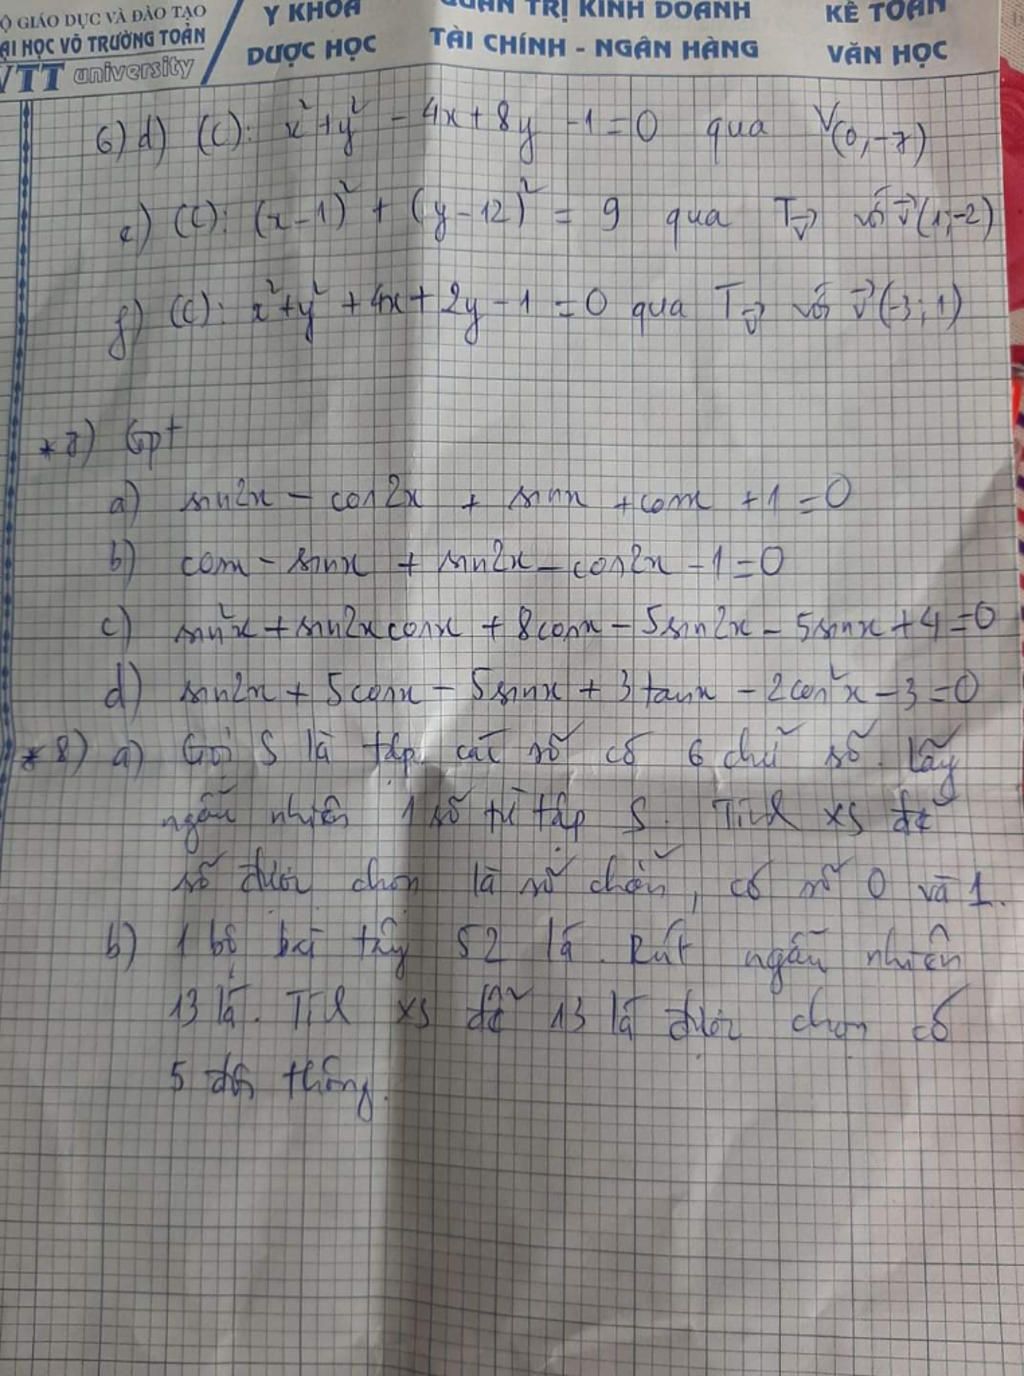 Ộ GIÁO DỤC VÀ ĐÀO TẠO
ẠI HỌC VÕ TRƯỜNG TOẢN
VTT university
Y KHOA
DƯỢC HỌC
QUẢN TRỊ KINH DOANH
TÀI CHÍNH - NGÂN HÀNG
KẾ TOÁN
VĂN HỌC
6) d) (C): x² + y² - 4x + 8y - 1 = 0 qua V(0, -7)
e) (C): (x-1)² + (y-12)² = 9 qua T_v⃗ với v⃗(1;-2)
f) (C): x² + y² + 4x + 2y - 1 = 0 qua T_v⃗ với v⃗(-3; 1)
* 7) Gpt
a) sin2x - cos2x + sinx + cosx + 1 = 0
b) cosx - sinx + sin2x - cos2x - 1 = 0
c) sin²x + sin2x cosx + 8cosx - 5sin2x - 5sinx + 4 = 0
d) sin2x + 5cosx - 5sinx + 3tanx - 2cos²x - 3 = 0
* 8) a) Gọi S là tập các số có 6 chữ số. Lấy
ngẫu nhiên 1 số từ tập S. Tính xs để
số được chọn là số chẵn, có số 0 và 1.
b) 1 bộ bài tây 52 lá. Rút ngẫu nhiên
13 lá. Tính xs để 13 lá được chọn có
5 đôi thông.